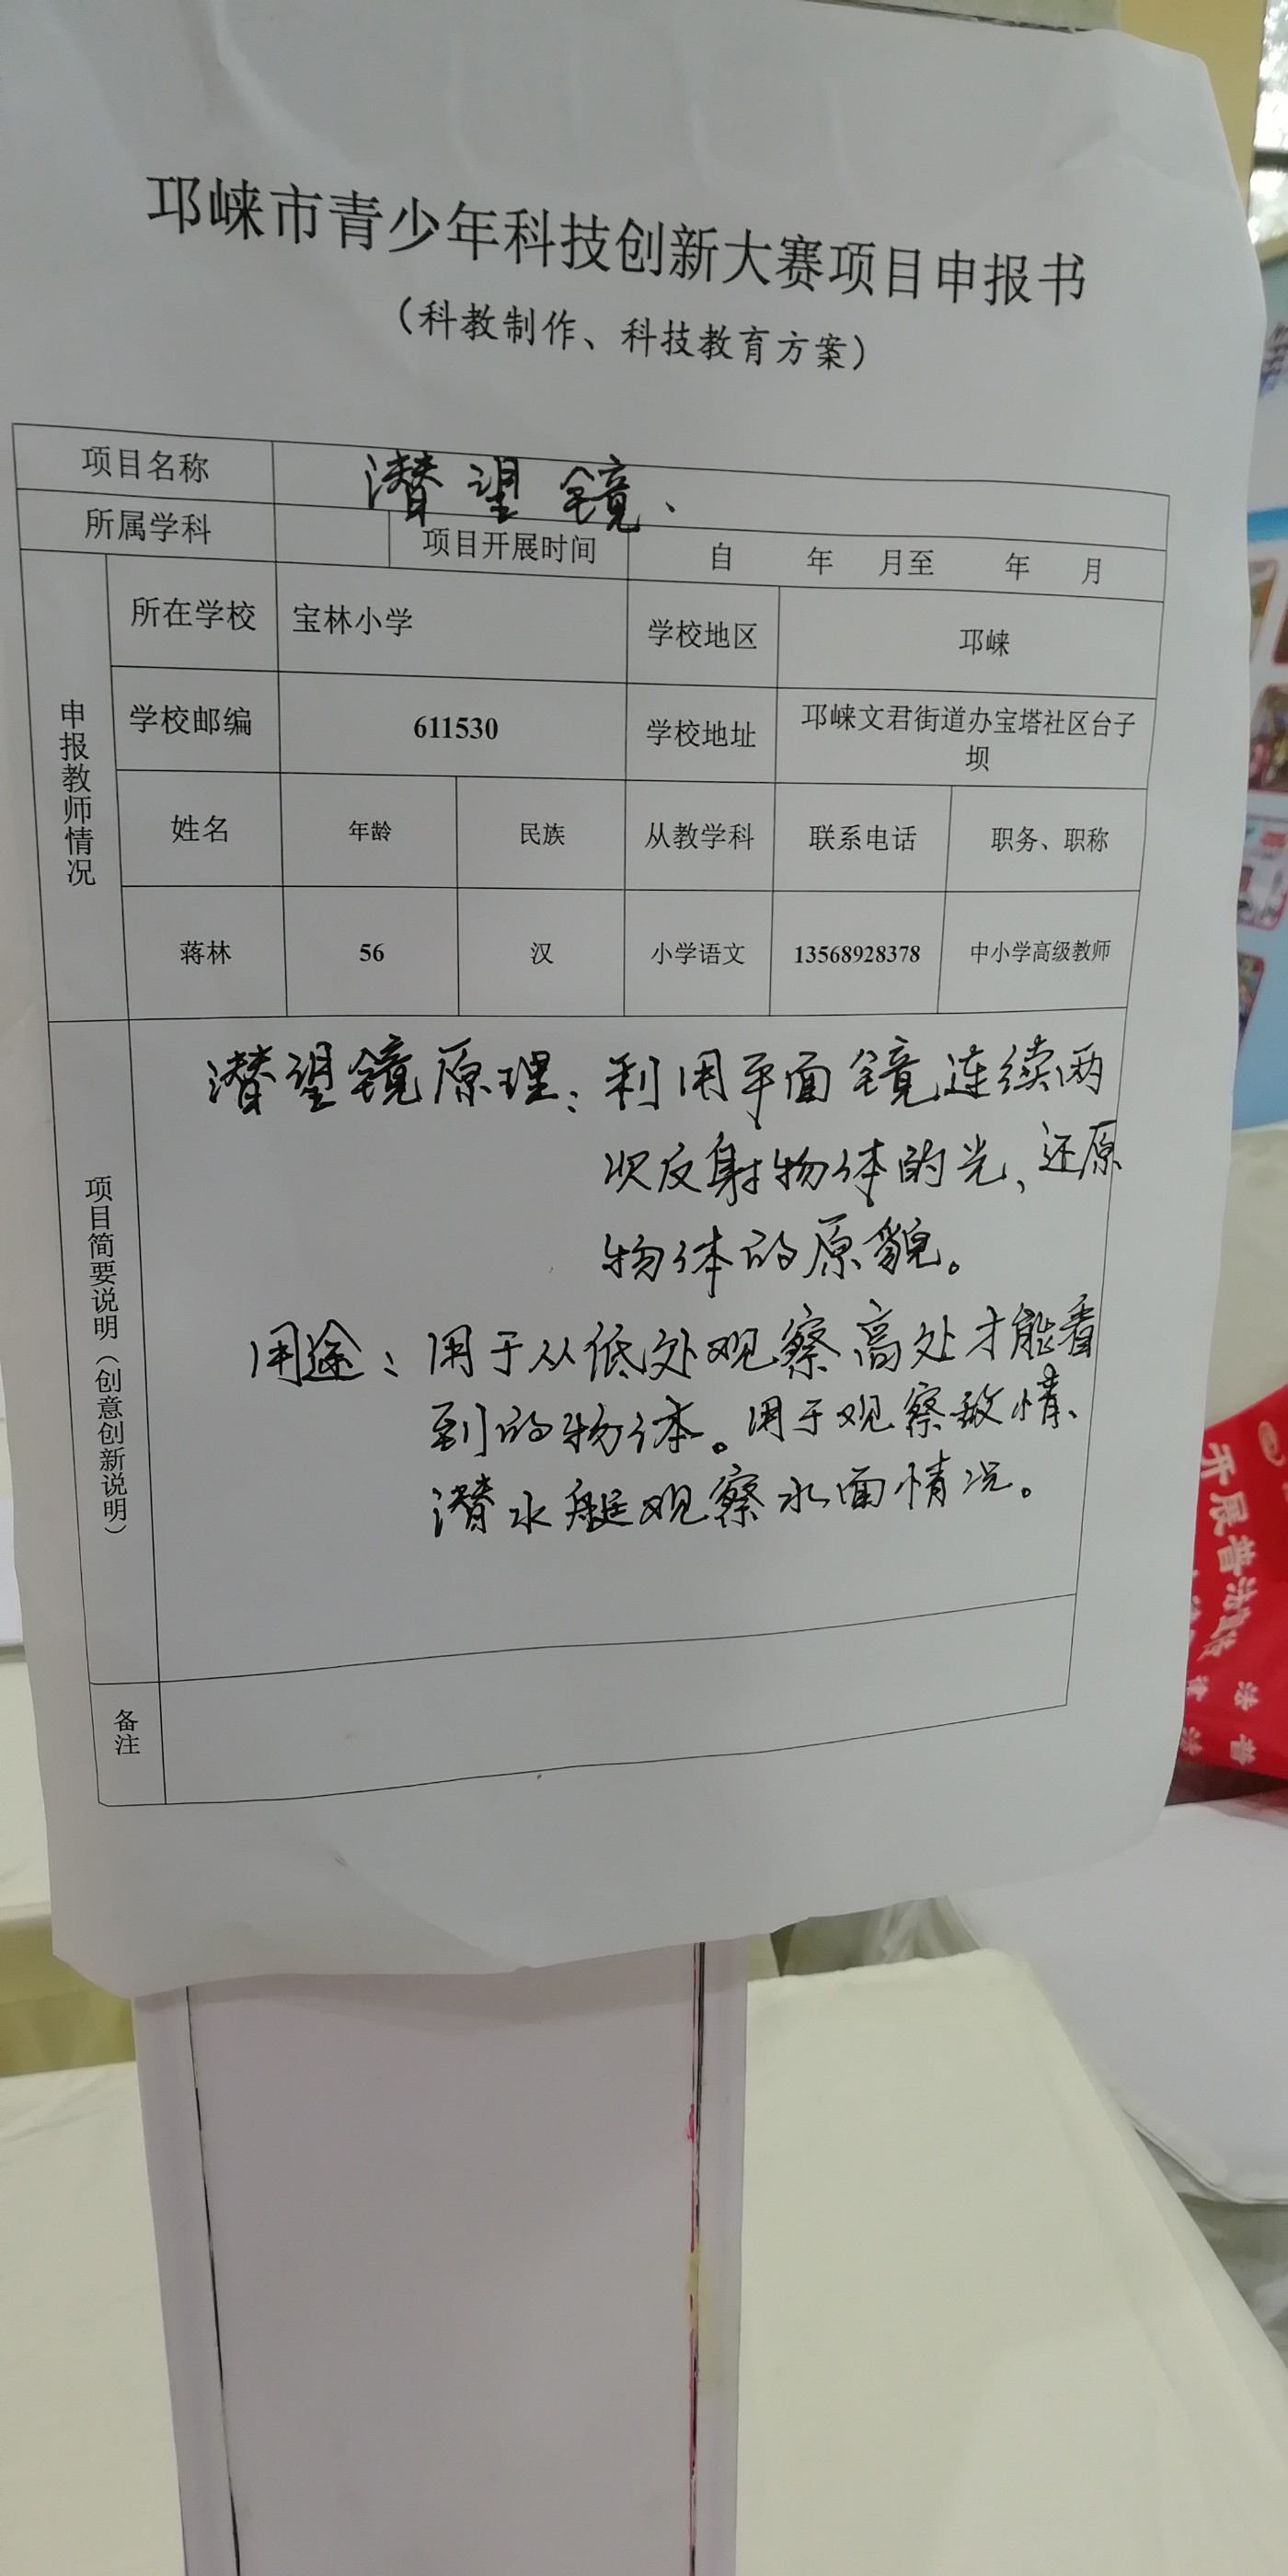 邛崃市青少年科技创新大赛项目申报书
（科教制作、科技教育方案）
项目名称 潜望镜、
所属学科 项目开展时间 自 年 月至 年 月
申报教师情况
所在学校 宝林小学 学校地区 邛崃
学校邮编 611530 学校地址 邛崃文君街道办宝塔社区台子
坝
姓名 年龄 民族 从教学科 联系电话 职务、职称
蒋林 56 汉 小学语文 13568928378 中小学高级教师
项目简要说明（创意创新说明）
潜望镜原理：利用平面镜连续两
次反射物体的光、还原
物体的原貌。
用途：用于从低处观察高处才能看
到的物体。用于观察敌情、
潜水艇观察水面情况。
备注
开展普法宣传